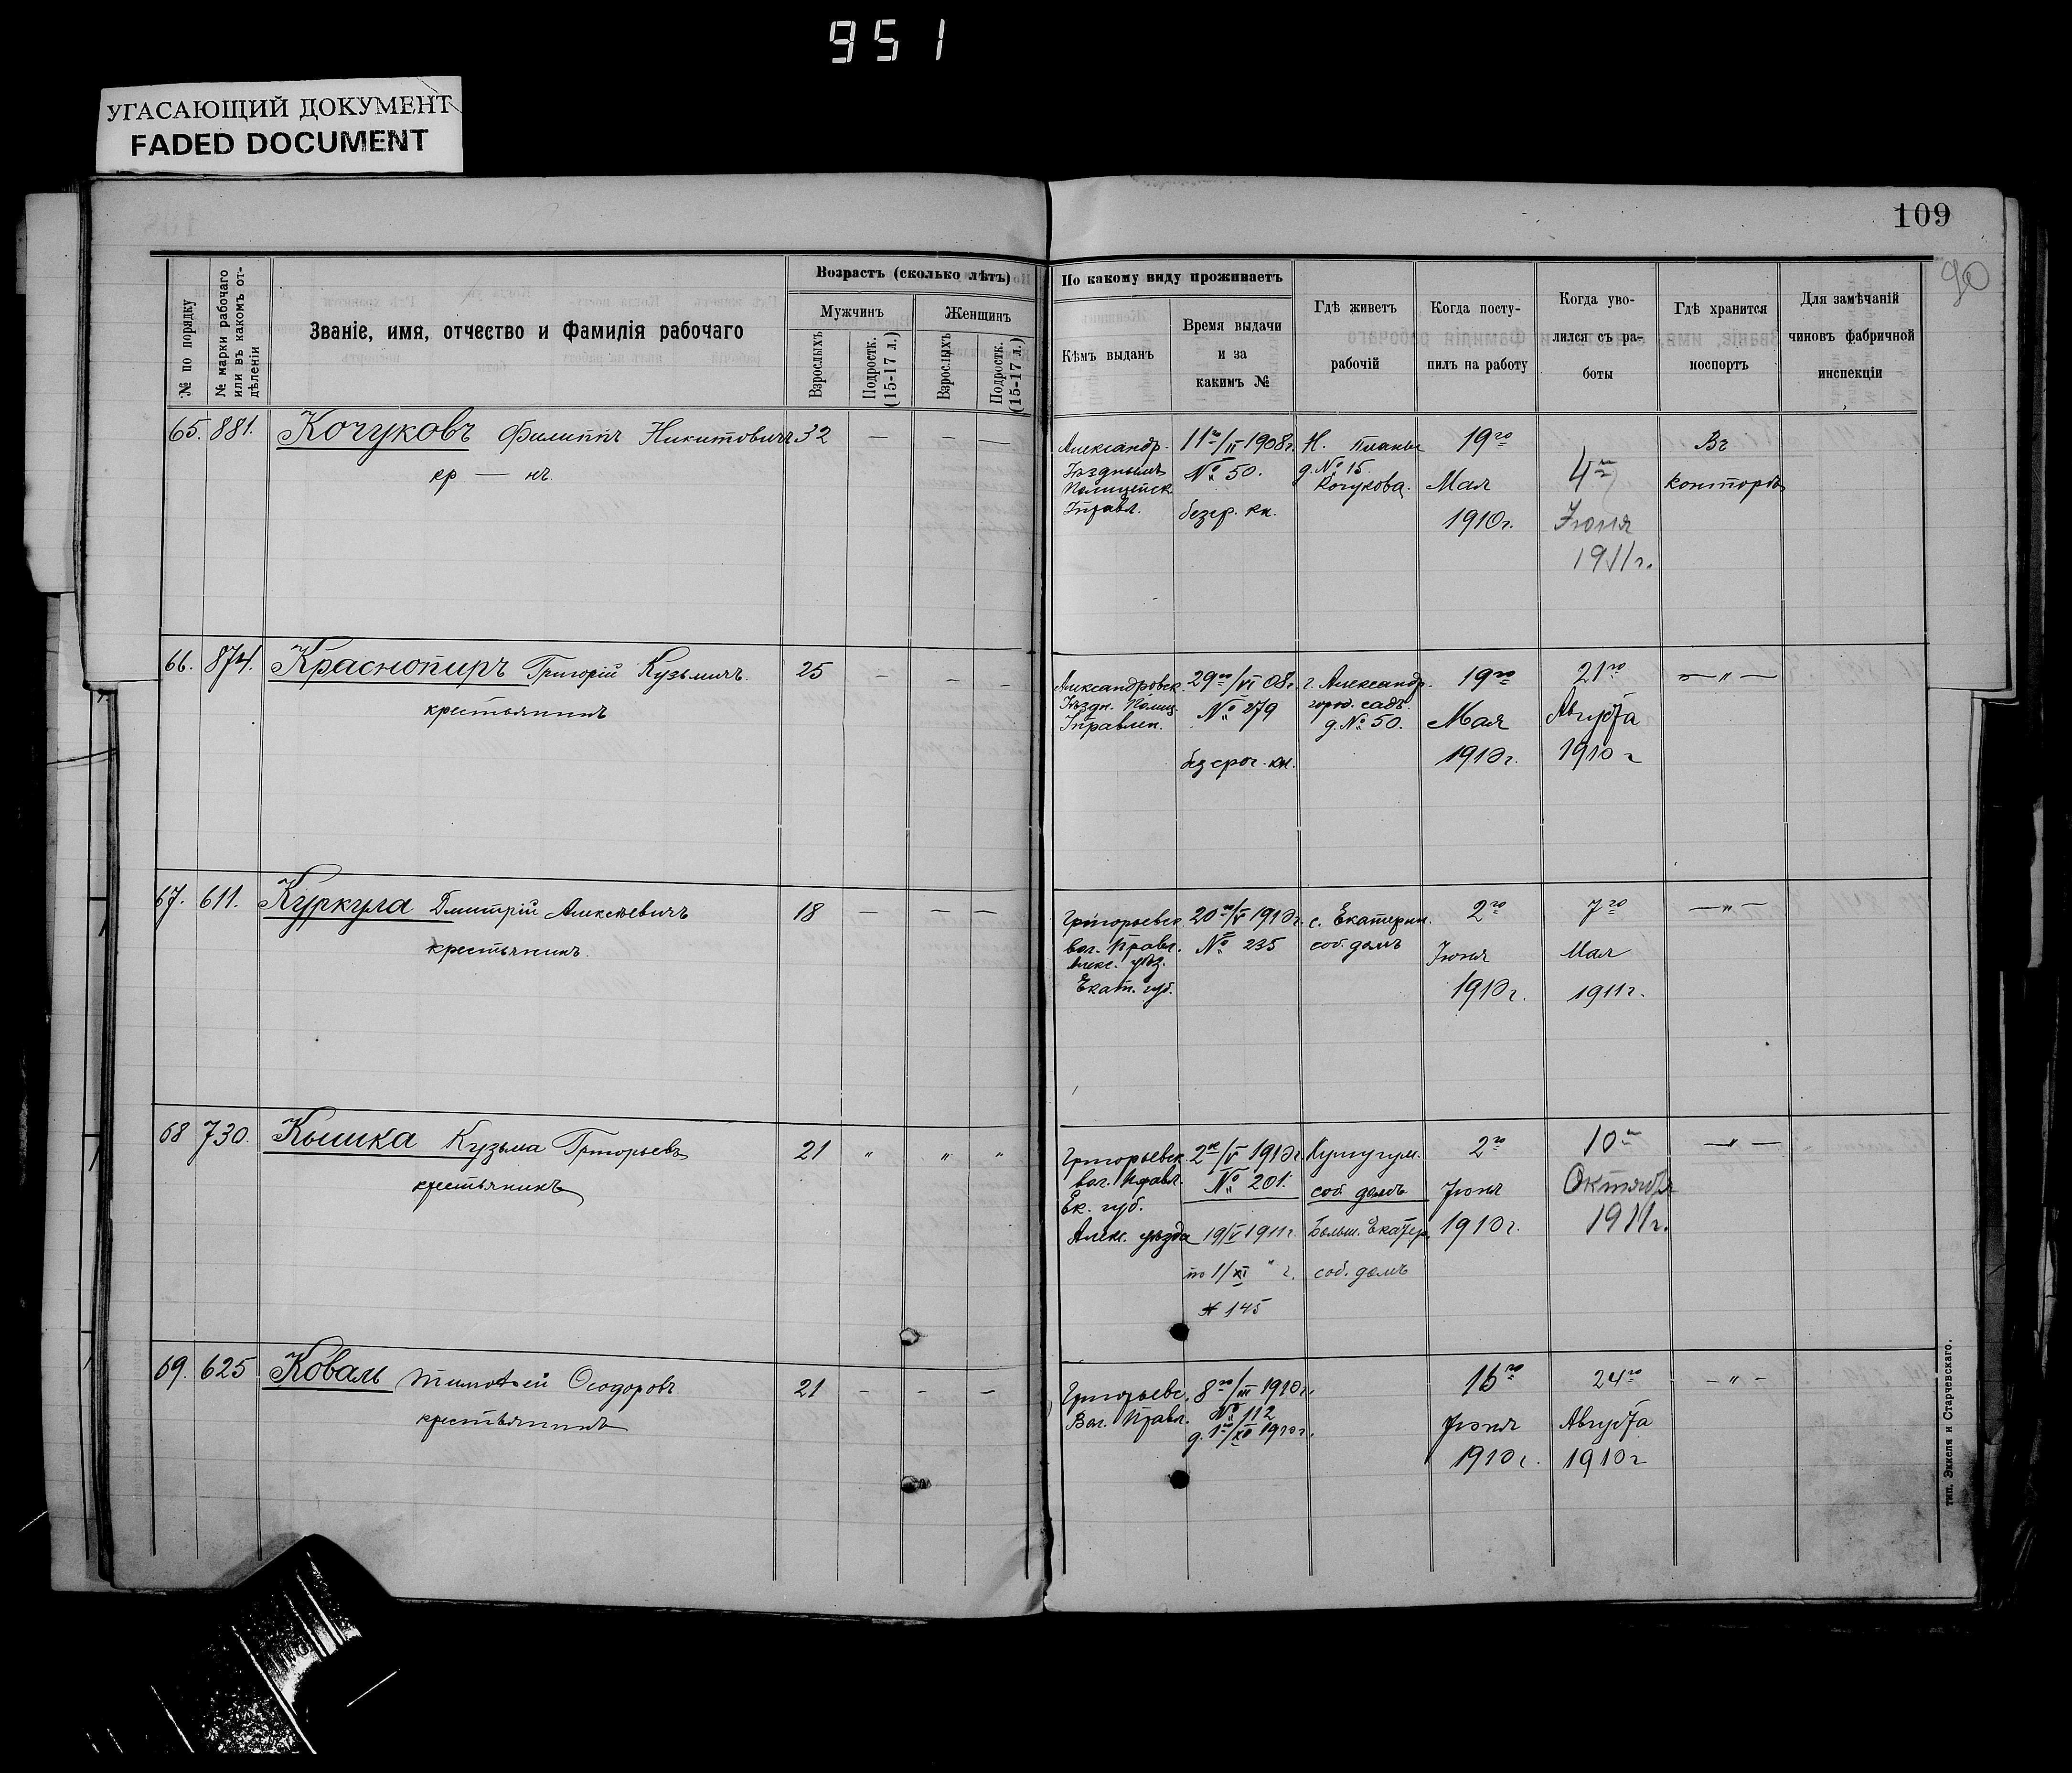 951
УГАСАЮЩИЙ ДОКУМЕНТ
FADED DOCUMENT
109
90
№ по порядку
№ марки рабочаго или въ какомъ отдѣленіи
Званіе, имя, отчество и фамилія рабочаго
Возрастъ (сколько лѣтъ)
Мужчинъ
Женщинъ
Взрослыхъ
Подростк. (15-17 л.)
Взрослыхъ
Подростк. (15-17 л.)
По какому виду проживаетъ
Кѣмъ выданъ
Время выдачи
и за
какимъ №
Гдѣ живетъ
рабочій
Когда посту-
пилъ на работу
Когда уво-
лился съ ра-
боты
Гдѣ хранится
паспортъ
Для замѣчаній
чиновъ фабричной
инспекціи
65. 881. Кочуковъ Филиппъ Никитовичъ 32 — — —
кр — нъ.
Александр.
Уѣзднымъ
Полицейск
Управл.
11го/II 1908г.
№ 50.
безср. кн.
Н. планы
д. № 15.
Кочукова.
19го
Мая
1910г.
4го
Іюня
1911г.
Въ
конторѣ
66. 874. Краснопиръ Григорій Кузьмичъ. 25 — — —
крестьянинъ
Александровск.
Уѣздн. Полиц.
Управлен.
29го/VI 08г.
№ 279
безсроч. кн.
г. Александр.
город. садъ.
д. № 50.
19го
Мая
1910г.
21го
Августа
1910 г
— " —
67. 611. Куркула Дмитрій Алексѣевичъ 18 — — —
крестьянинъ.
Григорьевск.
вол. Правл.
Алекс. уѣз.
Екат. губ.
20го/V 1910г.
№ 235
с. Екатерин.
соб. домъ
2го
Іюня
1910г.
7го
Мая
1911г.
— " —
68 730. Кышка Кузьма Григорьевъ 21 " " "
крестьянинъ
Григорьевск.
вол. Правл.
Ек. губ.
Алек. уѣзда
2го/V 1910г.
№ 201.
19/V 1911г.
по 1/XI " г.
№ 145
Кушугум.
соб. домъ
Больш. Екатер.
соб. домъ
2го
Іюня
1910г.
10го
Октября
1911г.
— " —
69. 625 Коваль Тимоѳей Ѳеодоровъ 21 — — —
крестьянинъ
Григорьевс.
Вол. Правл.
8го/III 1910г.
№ 112
д. 1го/XII 1910г.
15го
Іюня
1910г.
24го
Августа
1910г
— " —
тип. Эккеля и Старчевскаго.